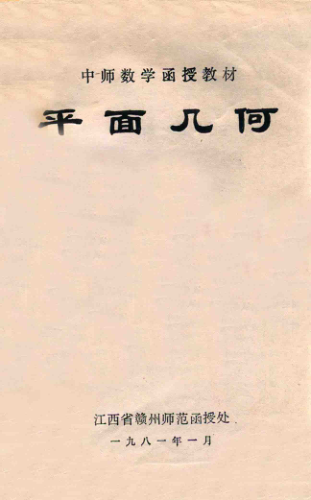 中师数学函授教材
平面几何
江西省赣州师范函授处
一九八一年一月